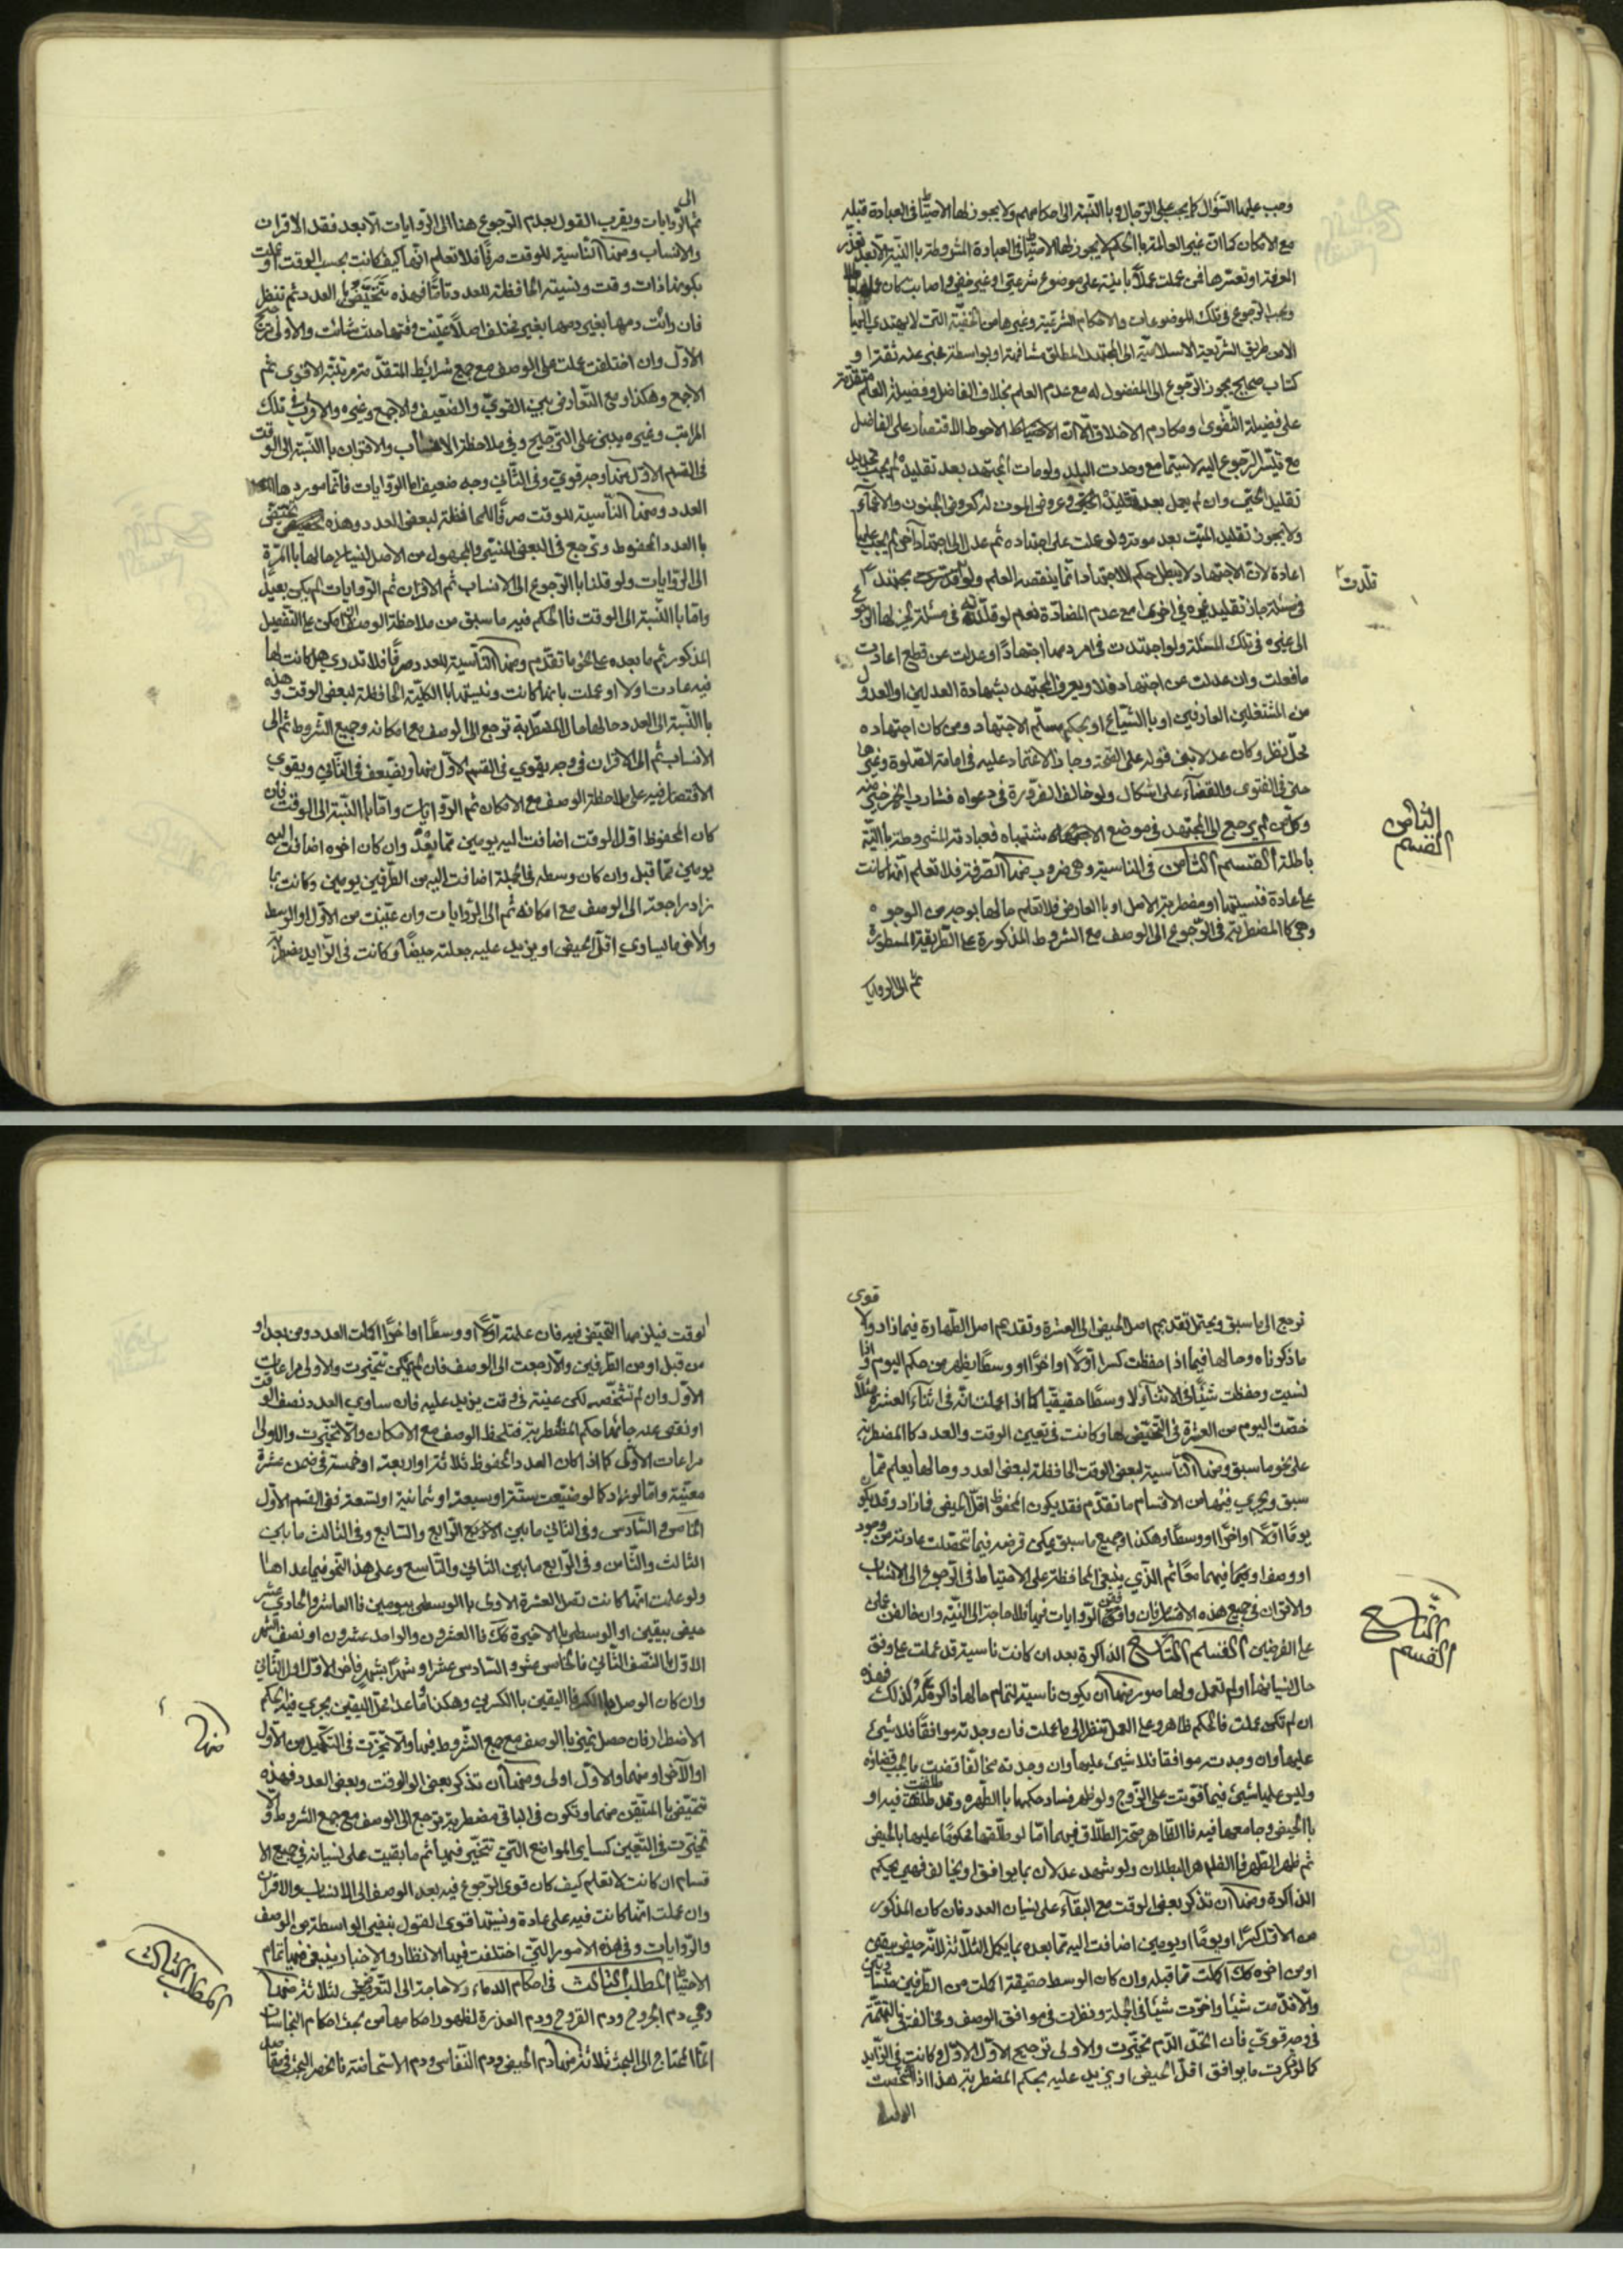 وجب عليها السؤال كما يجب على الرجال وبا النسبة الى احكامهم ولا يجوز لها الاحتياط في العبادة قبله
مع الامكان كما ان غير العالمة با الحكم لا يجوز لها الاحتياط في العبادة المشروطة با النية الا بعد تعذر
المعرفة او تعسرها فمن عملت عملاً بانية على موضوع شرعي او غير خفي واصابت كان
ويجب الرجوع في تلك الموضوعات والاحكام الشرعية وغيرها من الخفية التي لا يهتدي اليها
الا من طريق الشريعة الاسلامية الى المجتهد المطلق مشافهة او بواسطة مخبر عدل ثقة او
كتاب صحيح يجوز الرجوع الى المفضول له مع عدم العلم بخلاف الفاضل وفضيلة العلم متقدمة
على فضيلة التقوى ومكارم الاخلاق الا ان الاحتياط الاحوط الاقتصار على الفاضل
مع تيسر الرجوع اليه لاسيما مع وحدت البلد ولو مات المجتهد بعد تقليده لم يجب تجديد
تقليد الحي وان لم يعمل بعد تقليده وعروض الموت له كعروض الجنون والاغمآء
ولا يجوز تقليد الميت بعد موته ولو عملت على اجتهاده ثم عدل الى اجتهاد آخر لم يجب عليها
اعادة لان الاجتهاد لا يبطل حكم الاجتهاد انما ينقضه العلم ولو مجتهد
قلدت
في مسئلة جاز تقليد غيره في اخرى مع عدم المضادة نعم لو قلدته في مسئلة لم يجز لها الرجوع
الى غيره في تلك المسئلة ولو اجتهدت في امر دمها اجتهادًا وعدلت عن قطع اعادت
ما فعلت وان عدلت عن اجتهاد فلا ويعرف المجتهد بشهادة العدلين او العدول
من المشتغلين العارفين او با الشياع او بحكم مسلّم الاجتهاد ومن كان اجتهاده
محل نظر وكان عدلا بنى قوله على الصحة وجاز الاعتماد عليه في امامة الصلوة وغيرها
حتى في الفتوى والقضآء على اشكال ولو خالف الضرورة في دعواه فشارب الخمر خير منه
وكل من لم يرجع الى المجتهد في موضع الاشتباه فعبادته المشروطة با النية
الثامن
القسم
باطلة القسم الثامن في الناسية وهي ضروب منها الصرفة فلا تعلم انها كانت
على عادة فنسيتها او مضطربة الاصل او با العارض فلا تعلم حالها بوجه من الوجوه
وهي كا المضطربة في الرجوع الى الوصف مع الشروط المذكورة على الطريقة المسطورة
ثم الى الروايات
الى
ثم الروايات ويقرب القول بعدم الرجوع هنا الى الروايات الا بعد فقد الاقران
والانساب ومنها الناسية للوقت صرفًا فلا تعلم انها كيف كانت بحسب الوقت او علمت
بكونها ذات وقت ونسيته الحافظة للعدد تامًا فهذه تتحيض با العدد ثم تنظر
فان رأت دمها بغير مختلف اصلًا عينت وقتها حيث شائت والاولى ترجيح
الاول وان اختلفت عملت على الوصف مع جمع شرائط المتقدمة مرتبة الاقوى ثم
الاجمع وهكذا ومع التعارض بين القوي والضعيف والاجمع وغيره والاقرب في تلك
المراتب وغيره يبنى على الترجيح وفي ملاحظة الانساب والاقران با النسبة الى الوقت
في القسم الاول منها وجه قوي وفي الثاني وجه ضعيف اما الروايات فانما موردها
العدد ومنها الناسية للوقت صرفًا الحافظة لبعض العدد وهذه تتحيض
با العدد المحفوظ وترجع في البعض المنسي والمجهول من الاصل لنسيانها حالها با المرة
الى الروايات ولو قلنا با الرجوع الى الانساب ثم الاقران ثم الروايات لم يكن بعيدًا
واما با النسبة الى الوقت فا الحكم فيه ما سبق من ملاحظة الوصف ان امكن على التفصيل
المذكور ثم ما بعده على نحو ما تقدم ومنها الناسية للعدد صرفًا فلا تدري هل كانت لها
فيه عادت اولا او علمت بانها كانت ونسيتها با الكلية الحافظة لبعض الوقت وهذه
با النسبة الى العدد حالها حال المضطربة ترجع الى الوصف مع امكانه وجميع الشروط ثم الى
الانساب ثم الى الاقران في وجه يقوي في القسم الاول منها ويضعف في الثاني ويقوي
الاقتصار فيه على ملاحظة الوصف مع الامكان ثم الروايات واما با النسبة الى الوقت فان
كان المحفوظ اول الوقت اضافت اليه يومين مما بعد وان كان اخره اضافت اليه
يومين مما قبل وان كان وسطه في الجملة اضافت اليه من الطرفين يومين وكانت بما
زاد راجعة الى الوصف مع امكانه ثم الى الروايات وان عينت من الاول او الوسط
والآخر ما يساوي اقل الحيض او يزيد عليه جعلته حيضًا وكانت في الزايد مضطربة
قوى
ترجع الى ما سبق ويحتمل تقديم اصل الحيض الى العشرة وتقديم اصل الطهارة فيما زاد ولا
ما ذكرناه وحالها فيما اذا حفظت كسرا اولًا او اخرًا او وسطًا يظهر من حكم اليوم واذا
نسيت وحفظت شيئًا في الاثناء لا وسطًا حقيقيًا كما اذا علمت انه في اثناء العشرة مثلًا
خصت اليوم من العشرة في التحيض لها وكانت في تعيين الوقت والعدد كا المضطربة
على نحو ما سبق ومنها الناسية لبعض الوقت الحافظة لبعض العدد وحالها يعلم مما
سبق ويجري فيها من الاقسام ما تقدم فقد يكون المحفوظ اقل الحيض فما زاد وقد يكون
يومًا اولًا او اخرًا او وسطًا وهكذا وجميع ما سبق يمكن فرضه فيما تحصلت عادته من وجود
او وصف او فيهما معًا ثم الذي ينبغي المحافظة على الاحتياط في الرجوع الى الانساب
والاقران في جميع هذه الاقسام فان وافق الروايات فيها فلا حاجة الى النية وان خالفن
التاسع
القسم
على الفرضين القسم التاسع الذاكرة بعد ان كانت ناسية قد عملت على وفق
حال نسيانها او لم تعمل ولها صور منها ان يكون ناسية لتمام حالها ذاكرة كذلك فهذه
ان لم تكن عملت فالحكم ظاهر وعلى العمل تنظر الى ما عملت فان وجدته موافقًا فلا شيئ
عليها وان وجدت موافقا فلا شيئ عليها وان وجدته مخالفًا قضت ما يجب قضاؤه
وليس عليها شيئ فيما فوتت على الزوج ولو ظهر فساد حكمها با الطهر وقد طلقت فيه او
با الحيض وجامعها فيه فا الظاهر صحة الطلاق فيهما اما لو طلقها محكومًا عليها بالحيض
ثم ظهر الطهر فا الظاهر البطلان ولو شهد عدلان بما يوافق او يخالف فهي بحكم
الذاكرة ومنها ان تذكر بعض الوقت مع البقآء على نسيان العدد فان كان المذكور
من الاول كسرًا او يومًا او يومين اضافت اليه مما بعده بما يكمل الثلاثة لانه حيض بيقين
او من اخره كك اكملت مما قبله وان كان الوسط حقيقة اكملت من الطرفين متساويين
والا قدمت شيئًا واخرت شيئًا في الجملة ونظرت في موافق الوصف ومخالفته في التتمة
في وجه قوي فان اتحد الدم تخيرت والاولى ترجيح الاول الاول وكانت في الزايد
كما لو ذكرت ما يوافق اقل الحيض او يزيد عليه بحكم المضطربة هذا اذا
الوقت
لوقت فيلزمها التحيض فيه فان علمته اولًا او وسطًا او اخرًا اكملت العدد ومن بعد او
من قبل او من الطرفين والا رجعت الى الوصف فان لم يمكن تخيرت والاولى مراعات
الاول وان لم تشخصه لكن عينته في وقت يزيد عليه فان ساوى العدد نصف الوقت
او نقص عنه حكم المضطربة فتلحظ الوصف مع الامكان والا تخيرت والاولى
مراعات الاول كما اذا كان العدد المحفوظ ثلاثة او اربعة او خمسة في ضمن عشرة
معينة واما لو زاد كما لو ضيعت ستة او سبعة او ثمانية او تسعة ففي القسم الاول
الخامس والسادس وفي الثاني ما بين الرابع والسابع وفي الثالث ما بين
الثالث والثامن وفي الرابع ما بين الثاني والتاسع وعلى هذا النحو فيما عداها
ولو علمت انها كانت تصل العشرة الاولى با الوسطى بيومين فا العاشر والحادي عشر
حيض بيقين او الوسطى با الاخيرة كك فا العشرون والواحد عشرون او نصف الشهر
الاول با النصف الثاني فا الخامس عشر والسادس عشر او شهرًا بشهر فاخر الاول اول الثاني
وان كان الوصل با الكسر فا اليقين با الكسرين وهكذا وما عدا محل اليقين يجري فيه حكم
منها
الاضطرار فان حصل تميز با الوصف مع جمع الشروط فيها والا تخيرت في التكميل من الاول
او الآخر او منهما والاول اولى ومنها ان تذكر بعض الوقت وبعض العدد فهذه
تتحيض با المتيقن منهما وتكون في الباقي مضطربة ترجع الى الوصف مع جمع الشروط والا
تخيرت في التعيين كساير المواضع التي تتخير فيها ثم ما بقيت على نسيانه في جميع الا
قسام ان كانت لا تعلم كيف كان قوى الرجوع فيه بعد الوصف الى الانساب والاقران
وان علمت انها كانت فيه على عادة ونسيتها قوى القول بنفي الواسطة بين الوصف
والروايات وفي هذه الامور التي اختلفت فيها الانظار والاخبار ينبغي فيها تمام
المطلب الثالث
الاحتياط المطلب الثالث في احكام الدماء ولا حاجة الى التعرض لثلاثة منها
وهي دم الجروح ودم القروح ودم العذرة لظهور احكامها من بحث احكام النجاسات
انما المحتاج الى البحث ثلاثة منها دم الحيض ودم النفاس ودم الاستحاضة فانحصر البحث في مقاصد